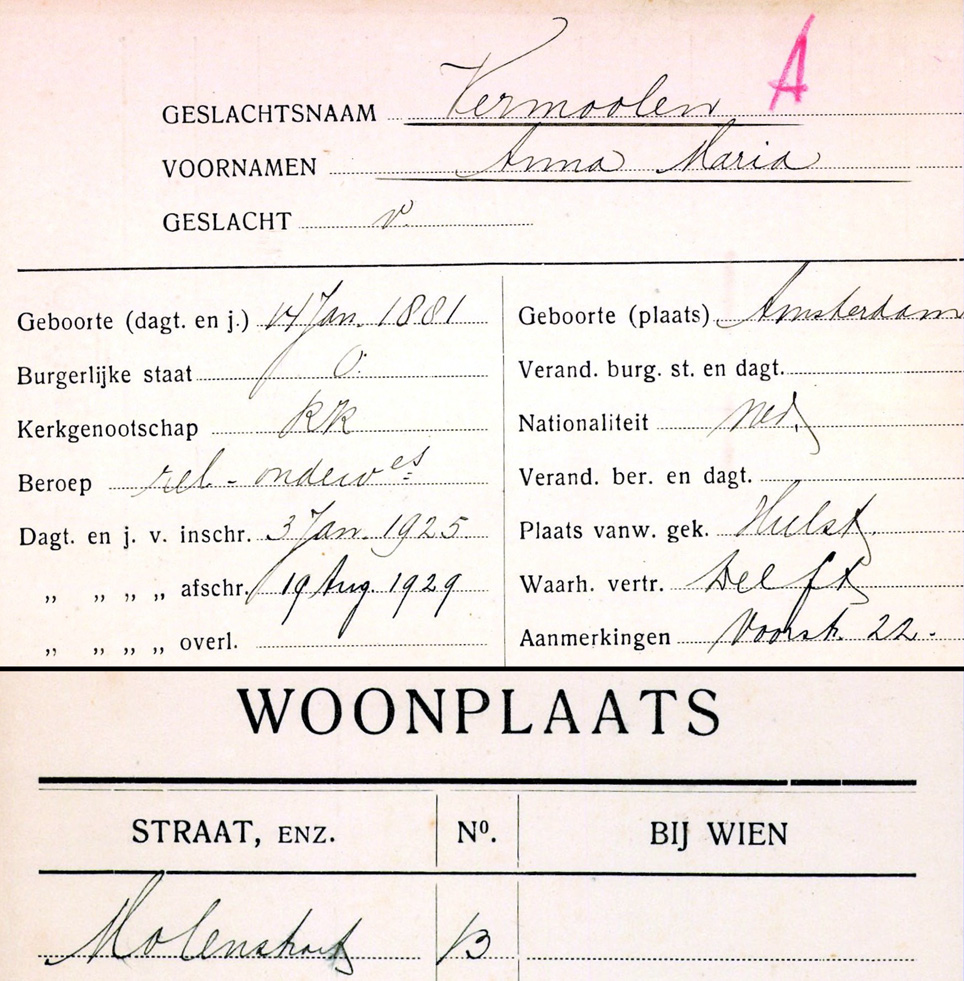 A
GESLACHTSNAAM Vermoolen
VOORNAMEN Anna Maria
GESLACHT v.
Geboorte (dagt. en j.) 14 Jan. 1881
Burgerlijke staat O.
Kerkgenootschap RK
Beroep rel-onderwes
Dagt. en j. v. inschr. 3 Jan. 1925
„ „ „ „ afschr. 19 Aug. 1929
„ „ „ „ overl.
Geboorte (plaats) Amsterdam
Verand. burg. st. en dagt.
Nationaliteit Ned.
Verand. ber. en dagt.
Plaats vanw. gek. Hulst
Waarh. vertr. Delft
Aanmerkingen Voorst. 22.
WOONPLAATS
STRAAT, ENZ. No. BIJ WIEN
Molenstraat 13